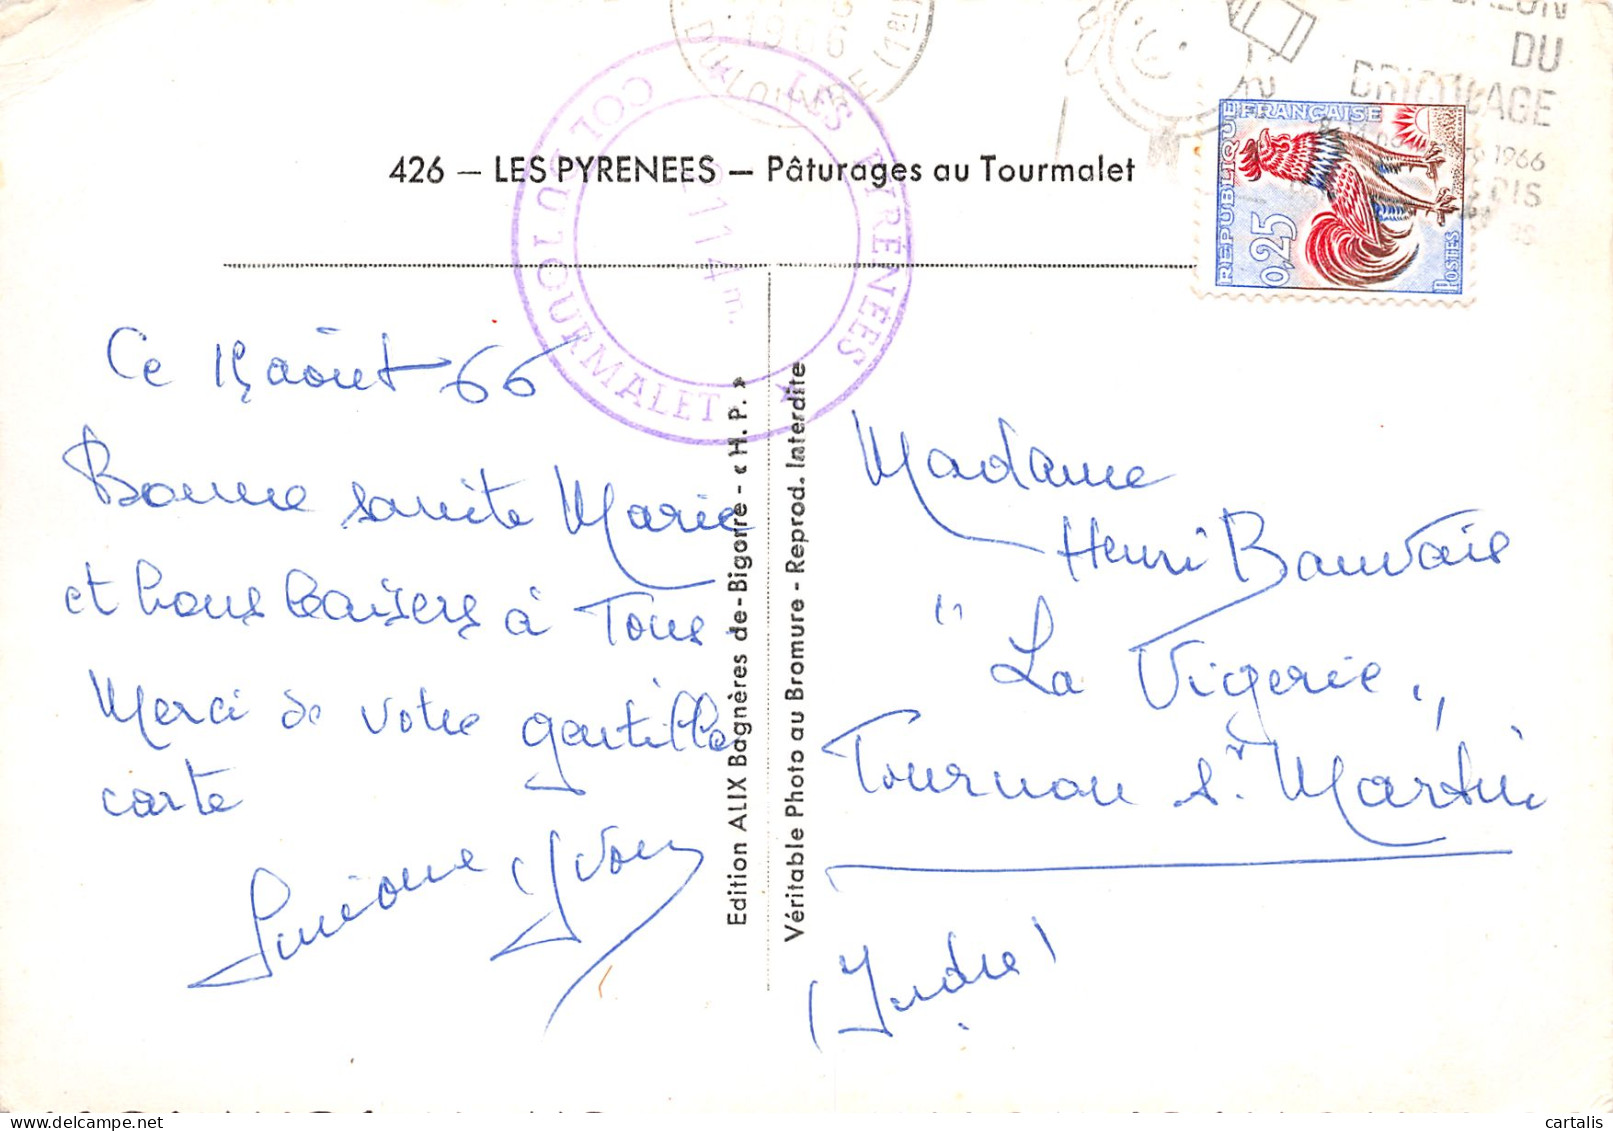 1966
DU LOUVRE (1er)
SALON
DU
BRICOLAGE
1966
PARIS
426 — LES PYRENEES — Pâturages au Tourmalet
REPUBLIQUE FRANÇAISE
0,25
POSTES
LES PYRÉNÉES
COL DU TOURMALET
2114 m.
Ce 15 août 66
Bonne santé Marie
et bons baisers à Tous.
Merci de votre gentille
carte
Simone Yvon
Edition ALIX Bagnères de-Bigorre - « H. P. »
Véritable Photo au Bromure - Reprod. Interdite
Madame
Henri Bauvais
"La Vigerie"
Tournon St. Martin
(Indre)
cartalis